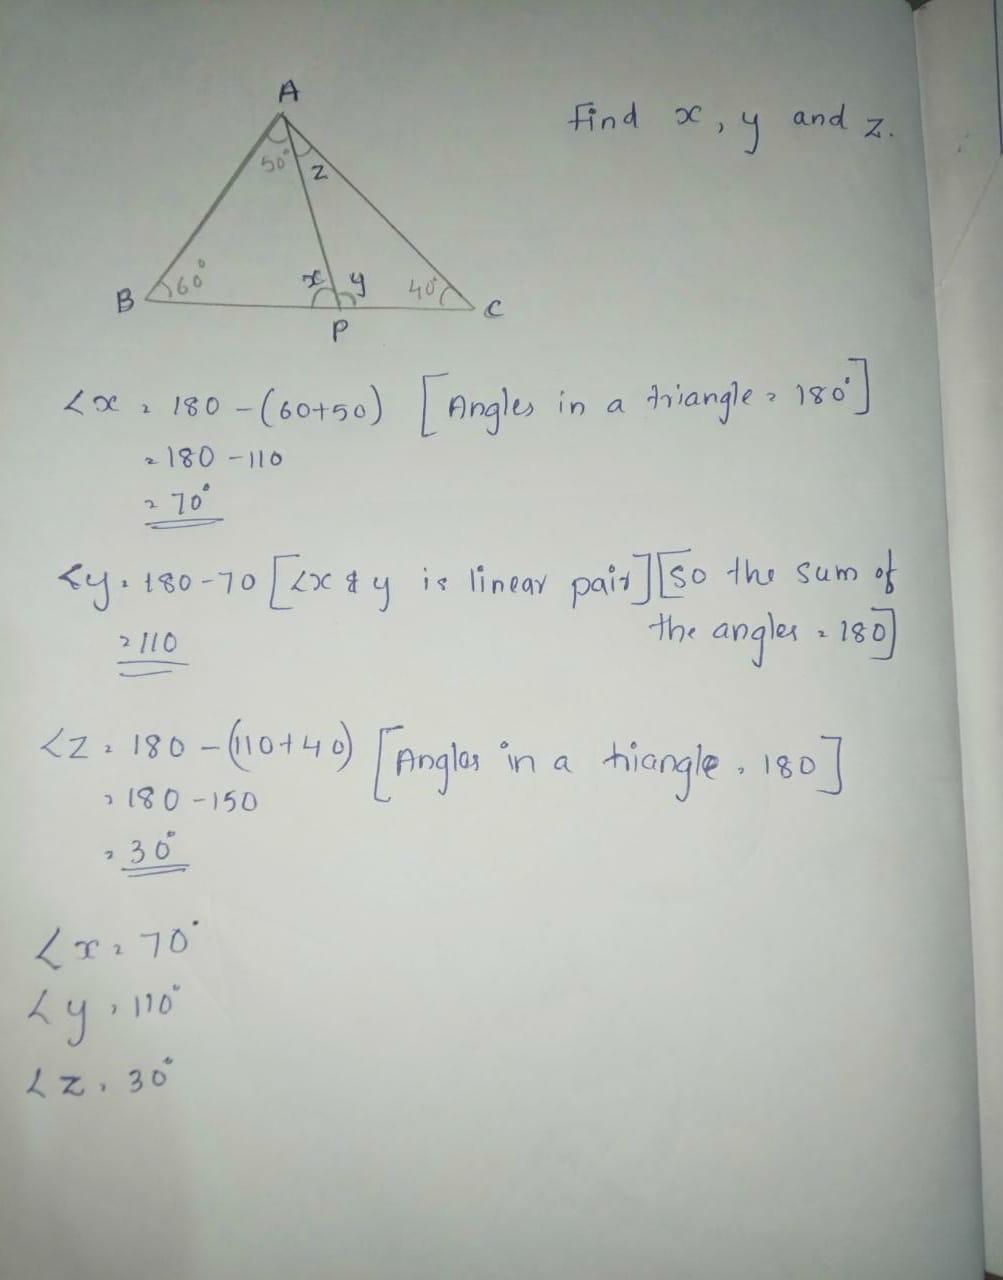 A
Find x, y and z.
50°
z
B
60°
x
y
40°
C
P
∠x = 180 - (60+50) [Angles in a triangle = 180°]
= 180 - 110
= 70°
∠y = 180 - 70 [∠x & y is linear pair] [so the sum of
the angles = 180]
= 110
∠z = 180 - (110+40) [Angles in a triangle = 180]
= 180 - 150
= 30°
∠x = 70°
∠y = 110°
∠z = 30°